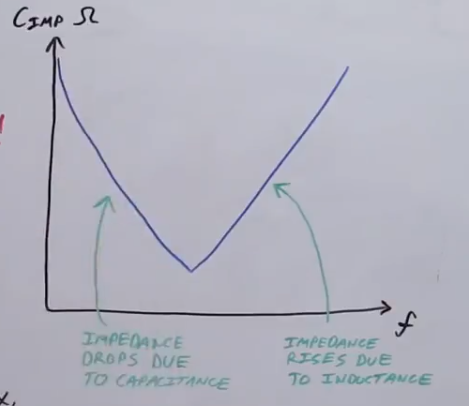 CIMP Ω
f
IMPEDANCE
DROPS DUE
TO CAPACITANCE
IMPEDANCE
RISES DUE
TO INDUCTANCE